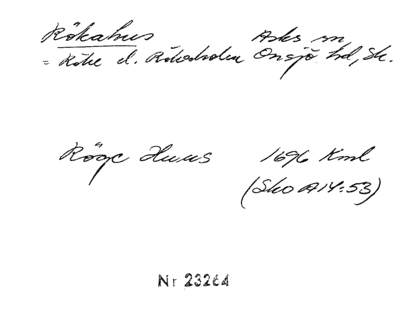 Rökahus Asks sn
= Röke el. Rökaholm Onsjö hd, Sk.
Röge Huus 1696 Kml
(Sko A14:53)
Nr 23264